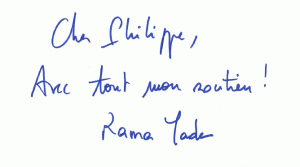 Cher Philippe,
Avec tout mon soutien !
Rama Yade